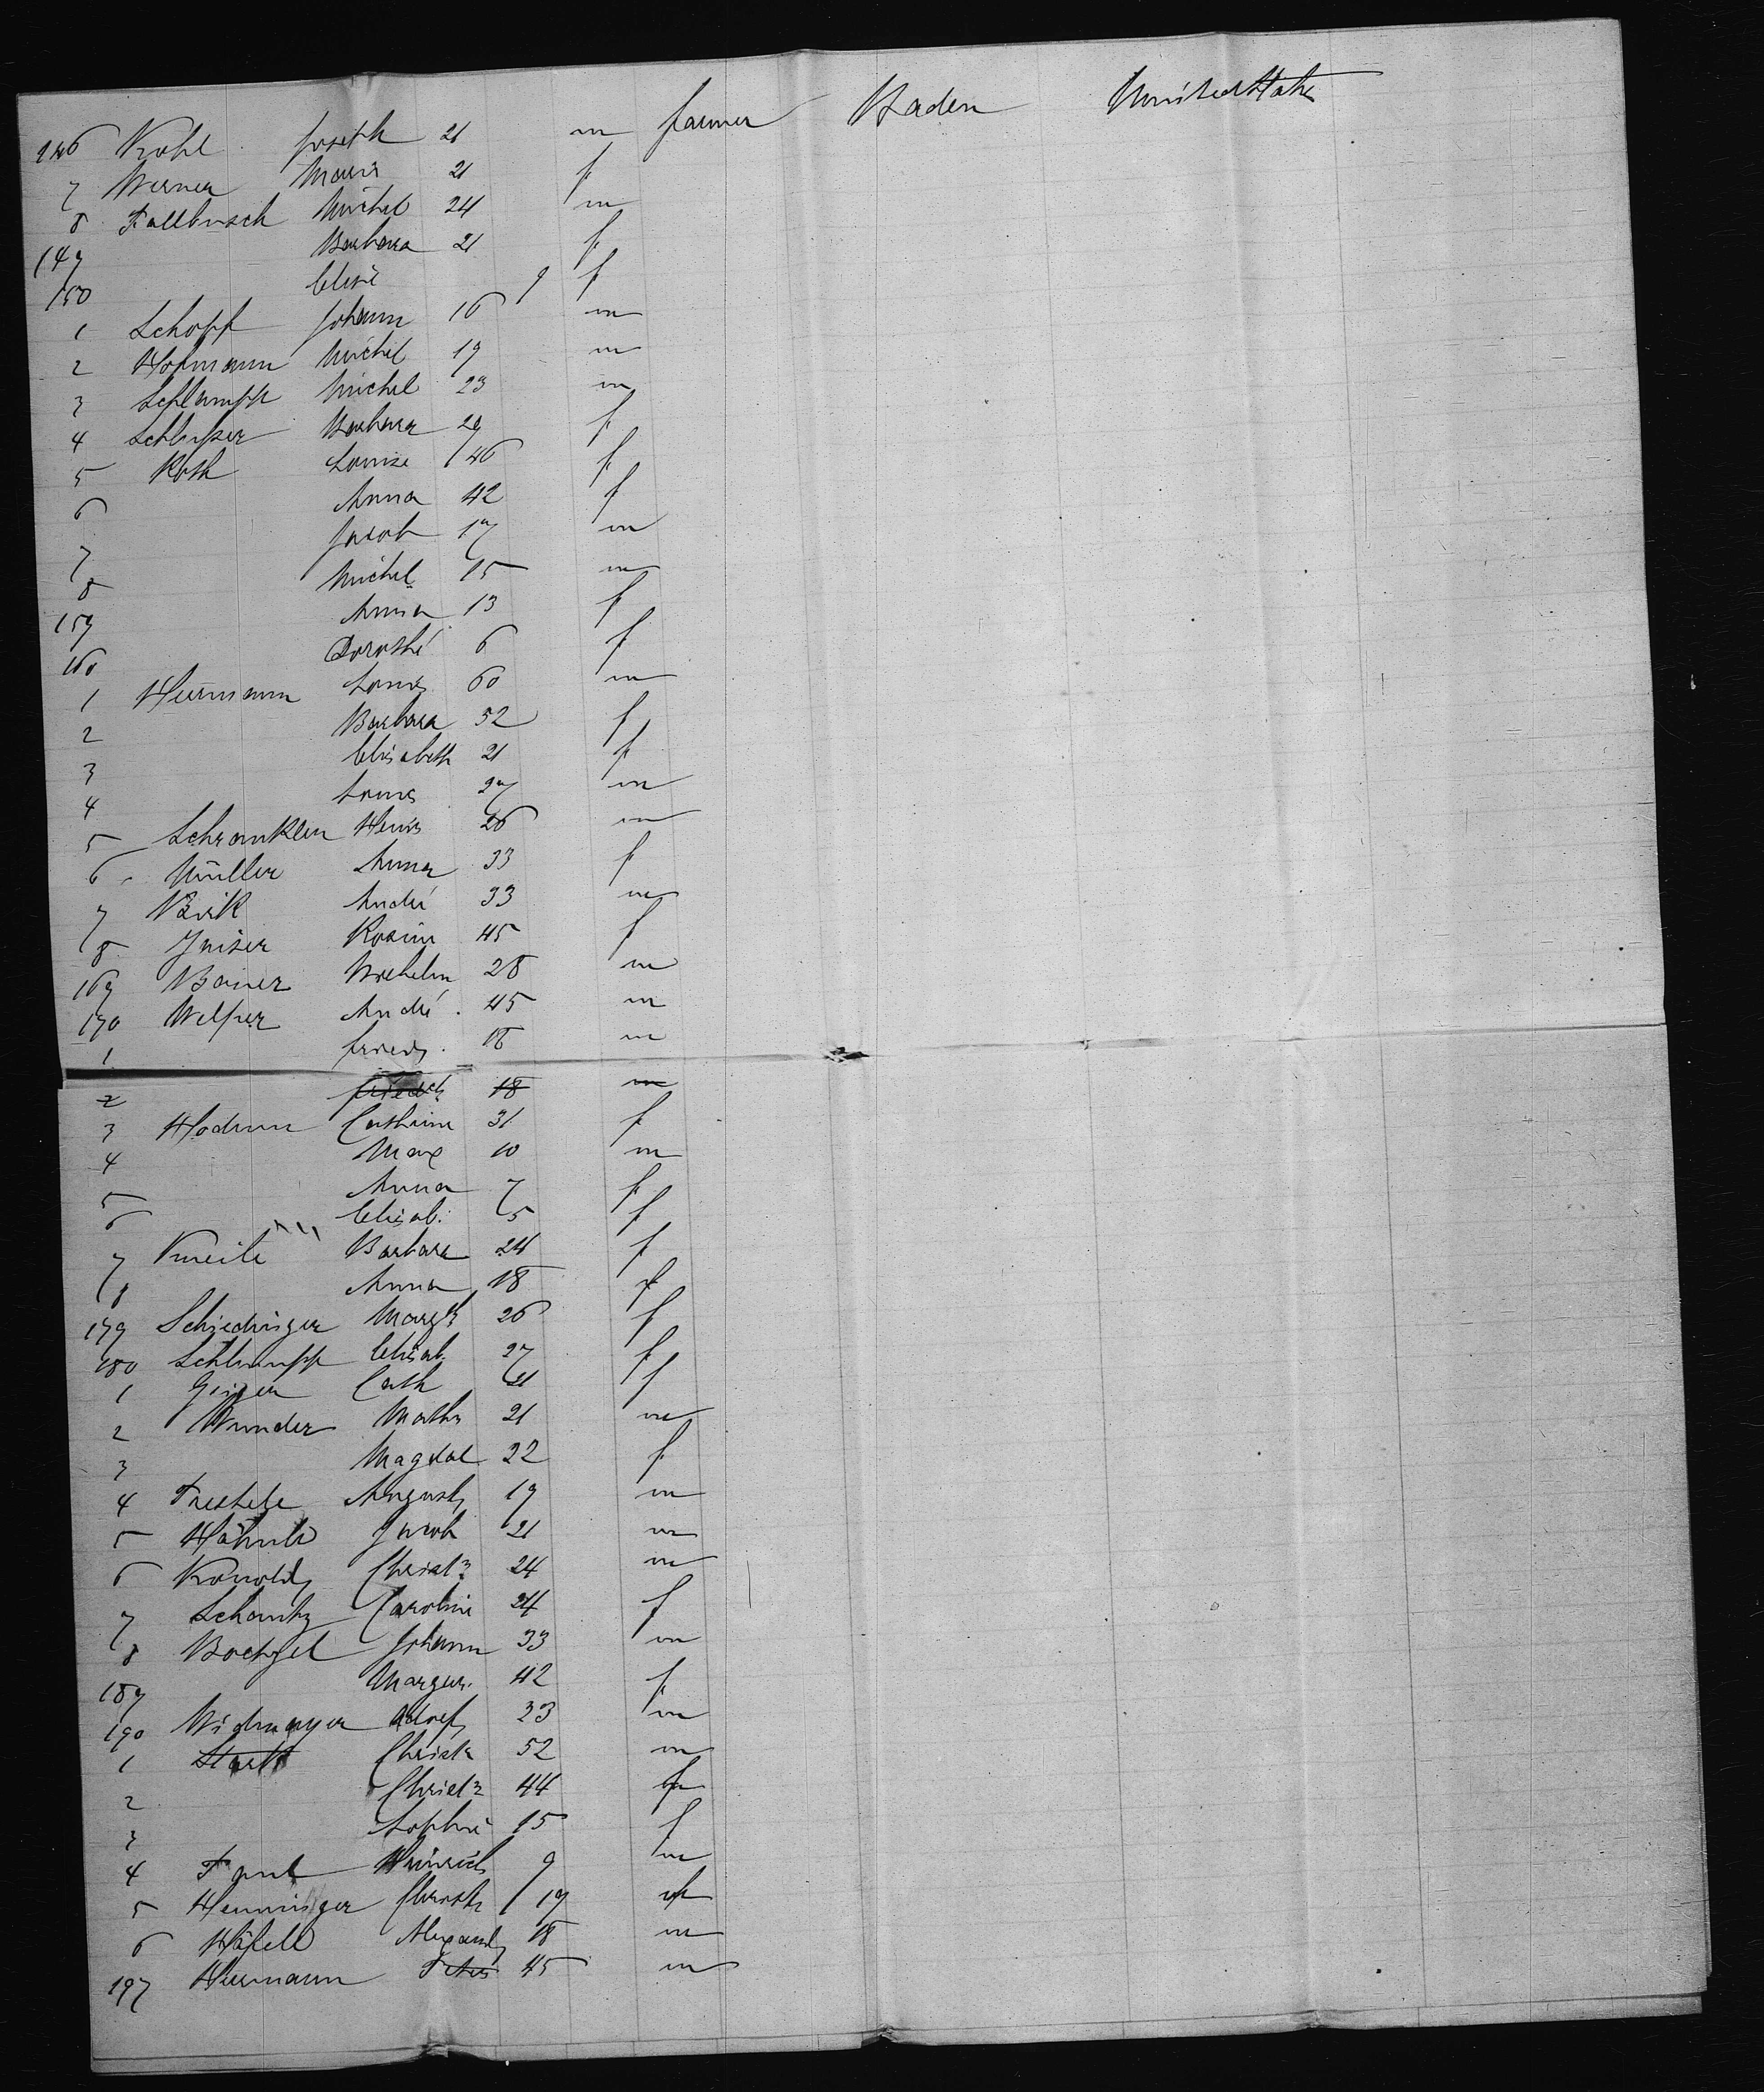 146 Kohl Joseph 21 m farmer Baden United States
7 Werner Maria 21 f
8 Fallbusch Michel 24 m
149 Barbara 21 f
150 Elise 9 f
1 Schopf Johann 16 m
2 Hofmann Michel 19 m
3 Schlumpp Michel 23 m
4 Schlusser Barbara 29 f
5 Roth Louise 46 f
6 Anna 42 f
7 Jacob 17 m
8 Michel 15 m
159 Anna 13 f
160 Dorothé 6 f
1 Herrmann Louis 60 m
2 Barbara 52 f
3 Elisabeth 21 f
4 Louis 27 m
5 Schranklen Henri 26 m
6 Müller Anna 33 f
7 Birk André 33 m
8 Jaiser Rosine 45 f
169 Bauer Wilhelm 28 m
170 Welper André 45 m
1 friedr. 18 m
2 friedch 18 m
3 Hodum Cathrine 31 f
4 Max 10 m
5 Anna 7 f
6 Elisab. 5 f
7 Kneile Barbara 24 f
8 Anna 18 f
179 Schiedinger Margth 26 f
180 Schlumpp Elisab. 27 f
1 Geiger Cath 21 f
2 Wunder Maths 21 m
3 Magdal 22 f
4 August 19 m
5 Hähnle Jacob 21 m
6 Konold Christn 24 m
7 Schantz Caroline 24 f
8 Bochzel Johann 33 m
189 Margar. 42 f
190 Widmayer Adolf 33 m
1 Stark Christn 52 m
2 Christn 44 f
3 Sophie 15 f
4 Faul Heinrich 9 m
5 Henninger Christn 19
6 Häfele Alexand 18 m
197 Herrmann 45 m